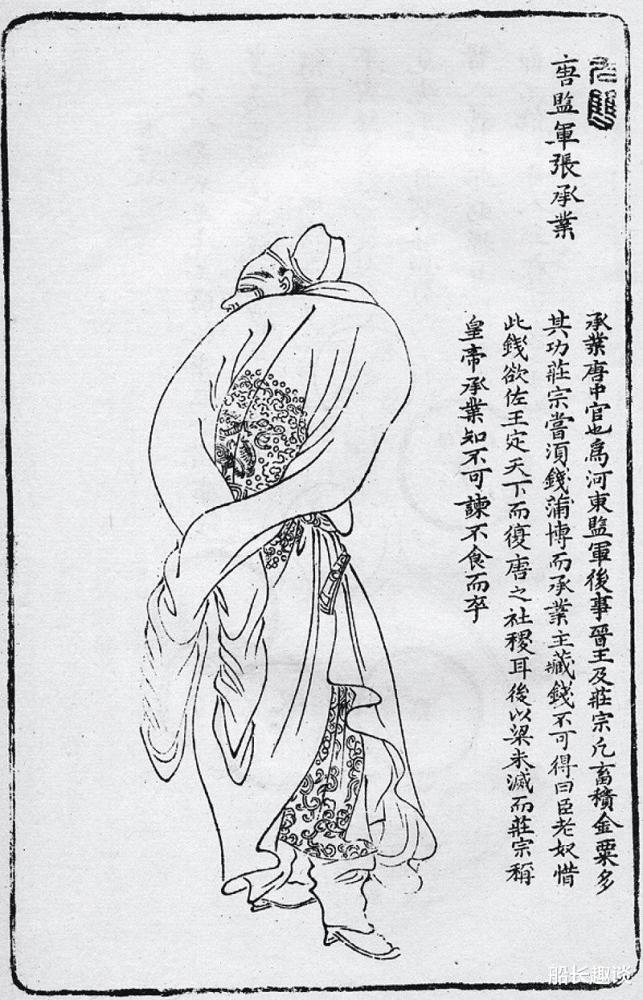 唐監軍張承業
承業唐中官也爲河東監軍後事晉王及莊宗凡畜積金粟多
其功莊宗嘗須錢蒲博而承業主藏錢不可得曰臣老奴惜
此錢欲佐王定天下而復唐之社稷耳後以梁未滅而莊宗稱
皇帝承業知不可諫不食而卒
船长趣谈